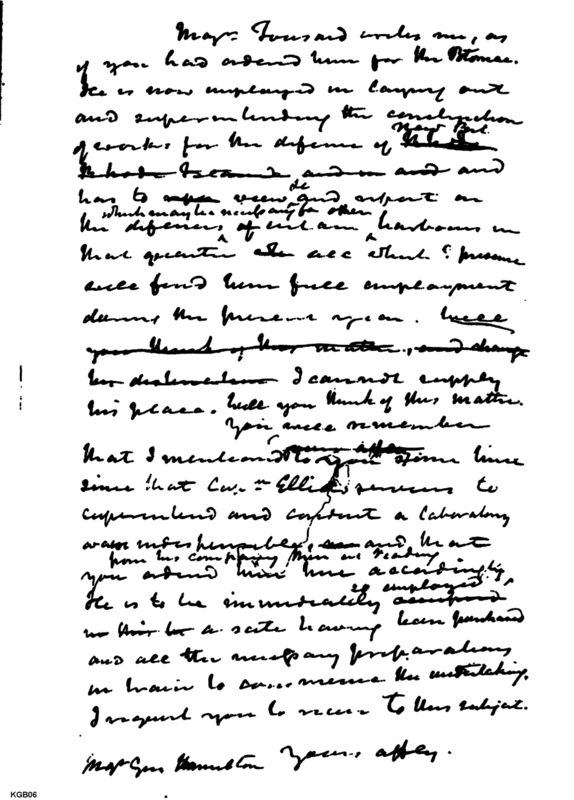 Majr. Tousard writes me, as
if you had ordered him for the Potomac.
He is now employed in carrying out
and superintending the construction
New Port
of works for the defence of
Rhode Island and in and and
has to view and report on
which may be necessary for other
the defences of certain harbours in
that quarter all which I presume
will find him full employment
during the present year. Will
you think of this matter, and change
his destination I cannot supply
his place. Will you think of this matter.
You will remember
that I mentioned to you some time
since that Capn. Elliots services to
superintend and conduct a laboratory
was indispensable, and that
from his company then at Reading
you ordered him here accordingly
so employed
He is to be immediately
a scite having been purchased
and all the necessary preparations
in train to commence the undertaking.
I request you to recur to this subject.
Yours affey.
Majr Gen Hamilton
KGB06